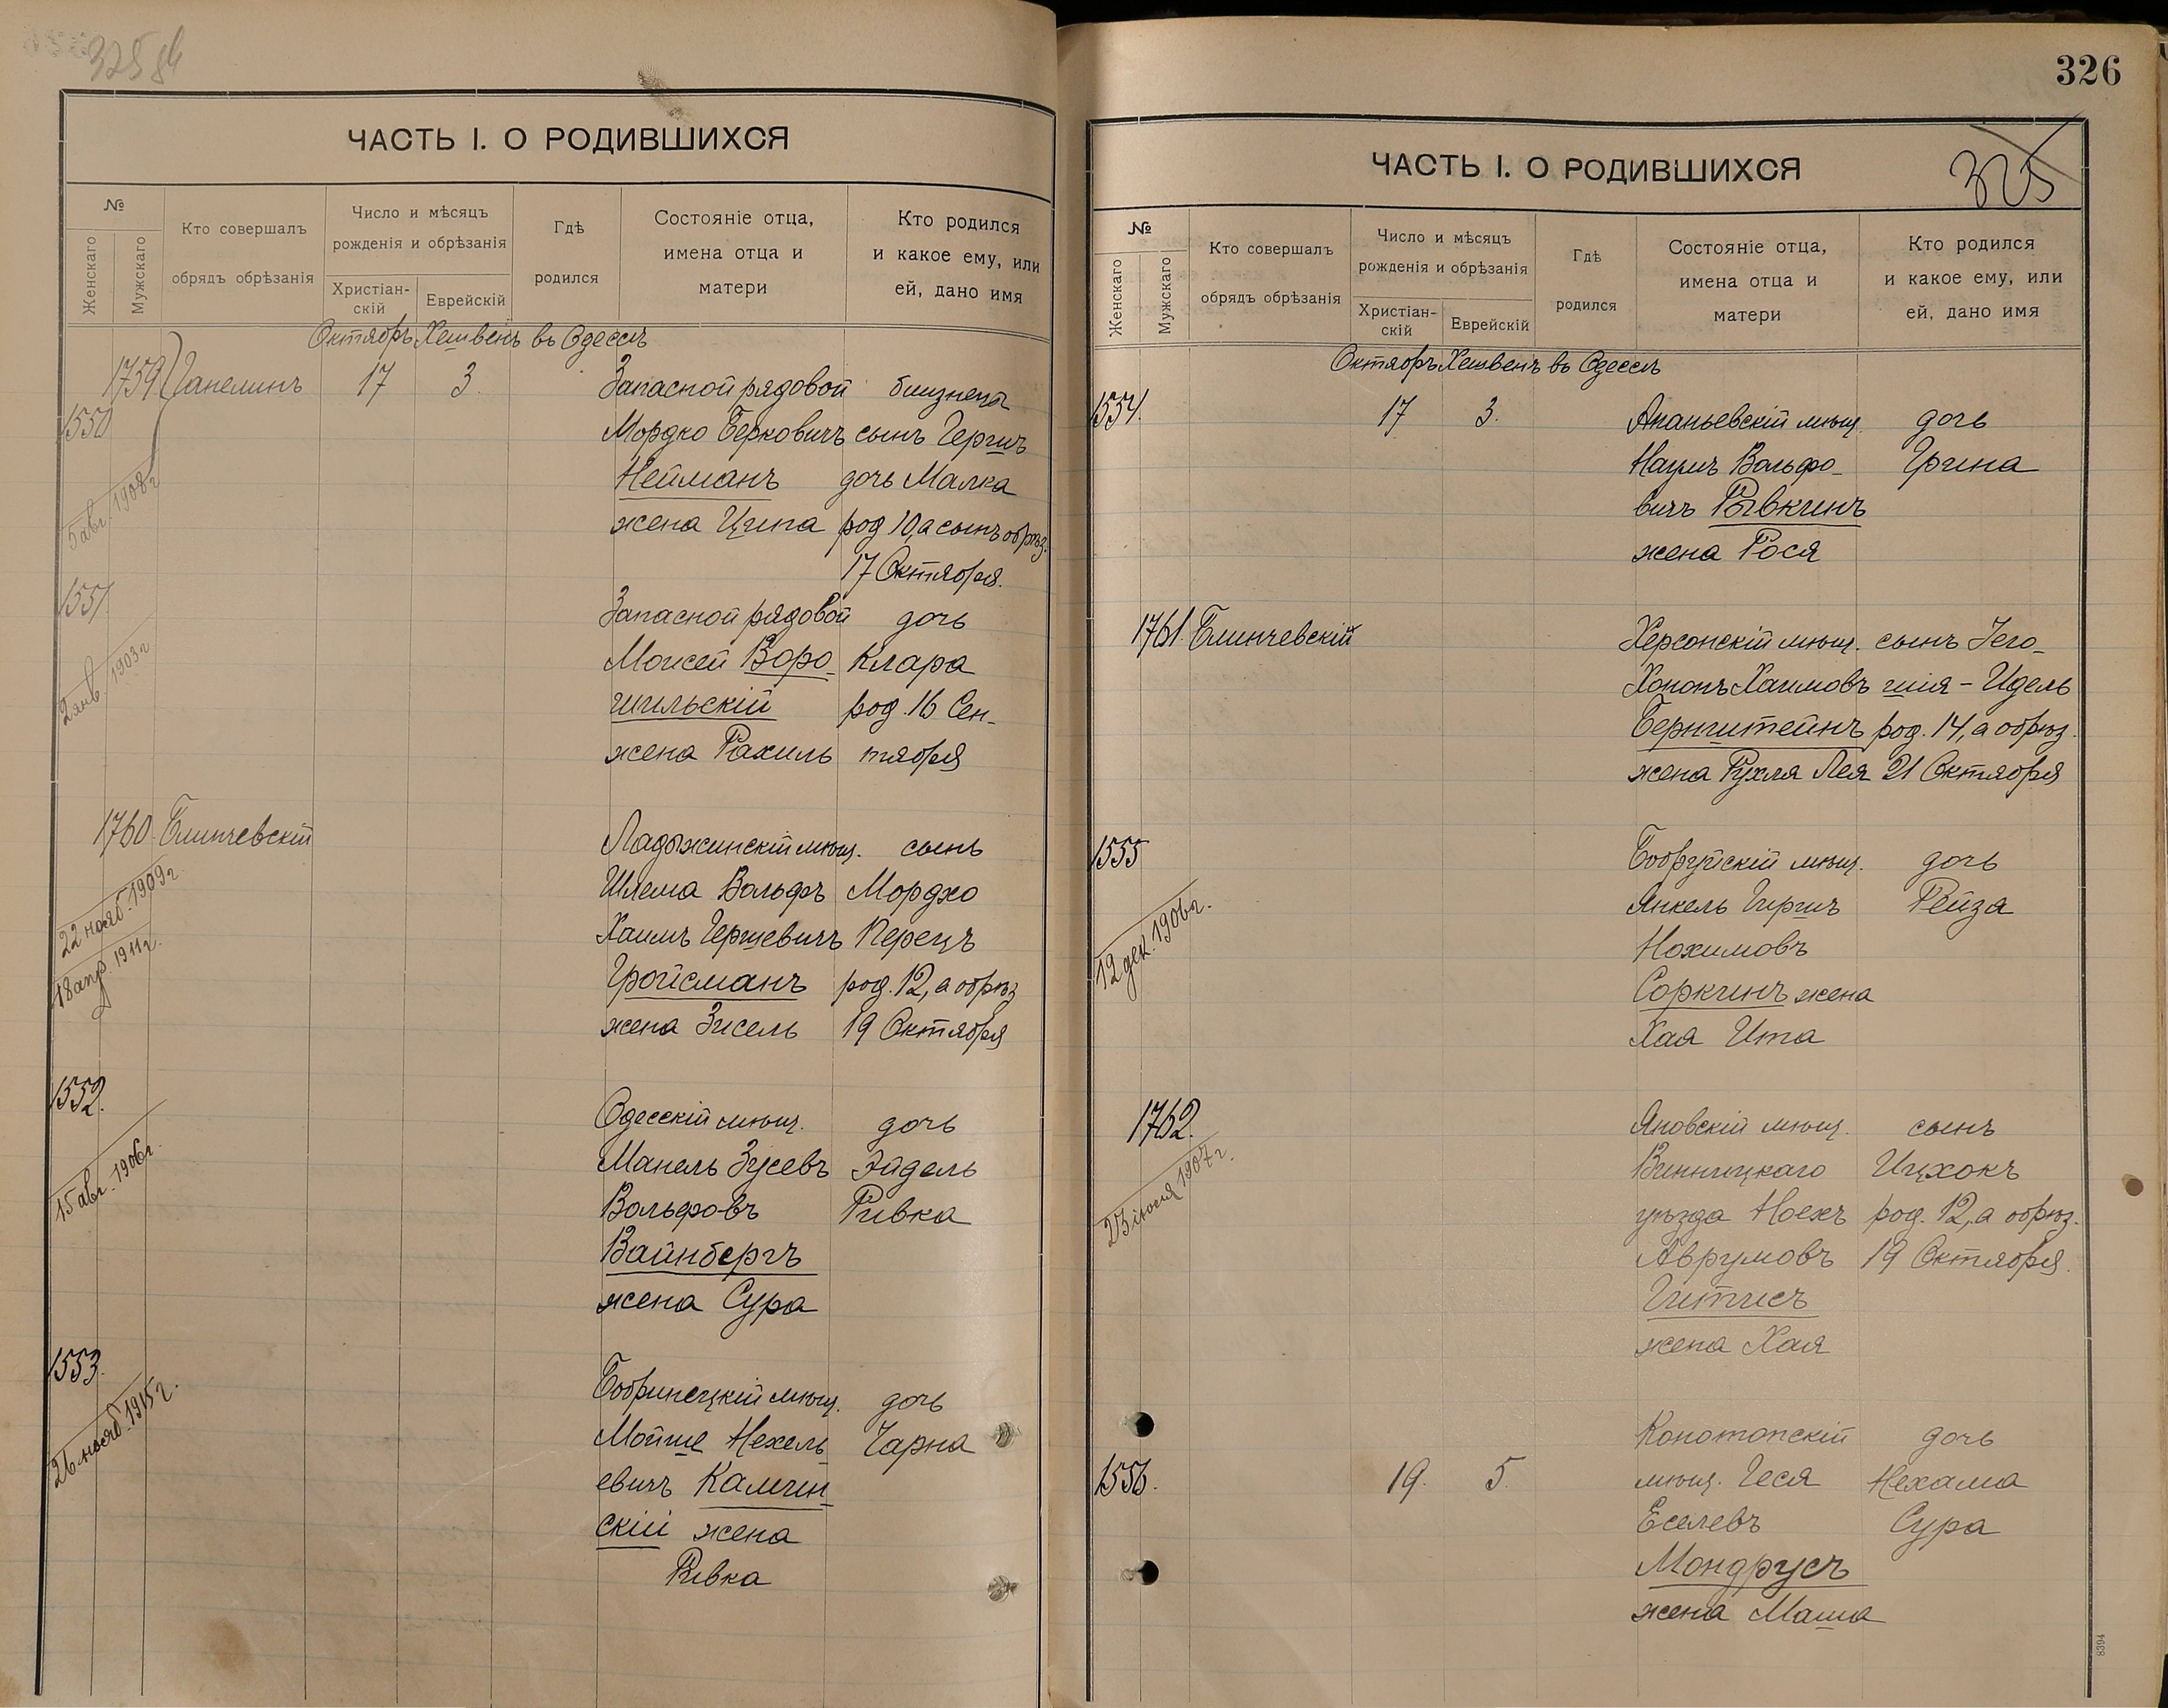 325 об
ЧАСТЬ I. О РОДИВШИХСЯ
№
Женскаго
Мужскаго
Кто совершалъ
обрядъ обрѣзанія
Число и мѣсяцъ
рожденія и обрѣзанія
Христіан-
скій
Еврейскій
Гдѣ
родился
Состояніе отца,
имена отца и
матери
Кто родился
и какое ему, или
ей, дано имя
Октябрь Хешвенъ въ Одессѣ
1759 Ганелинъ 17 3. Запасной рядовой близнецы
1550 Мордко Берковичъ сынъ Гершъ
Нейманъ дочь Малка
5 авг. 1908 г
жена Ципа род 10, а сынъ обрѣз.
17 Октября.
1551 Запасной рядовой дочь
Моисей Воро- Клара
2 янв. 1903 г
шильскій род. 16 Сен-
жена Рахиль тября
1760. Блинчевскій Ладыжинскій мѣщ. сынъ
Шлема Вольфъ Мордко
22 нояб. 1909 г.
Хаимъ Гершевичъ Перецъ
18 апр. 1911 г.
Гройсманъ род. 12, а обрѣз
жена Зисель 19 Октября
1552. Одесскій мѣщ. дочь
Манель Зусевъ Эйдель
15 авг. 1906 г.
Вольфовъ Ривка
Вайнбергъ
жена Сура
1553. Бобринецкій мѣщ. дочь
Мойше Нехель Чарна
26 нояб. 1915 г.
евичъ Камин-
скій жена
Ривка
326
325
ЧАСТЬ I. О РОДИВШИХСЯ
№
Женскаго
Мужскаго
Кто совершалъ
обрядъ обрѣзанія
Число и мѣсяцъ
рожденія и обрѣзанія
Христіан-
скій
Еврейскій
Гдѣ
родился
Состояніе отца,
имена отца и
матери
Кто родился
и какое ему, или
ей, дано имя
Октябрь Хешвенъ въ Одессѣ
1554. 17 3. Ананьевскій мѣщ. дочь
Нацмъ Вольфо- Ирина
вичъ Рывкинъ
жена Рося
1761. Блинчевскій Херсонскій мѣщ. сынъ Іего-
Хононъ Хаимовъ шія - Идель
Бернштейнъ род. 14, а обрѣз.
жена Рухля Лея 21 Октября
1555 Бобруйскій мѣщ. дочь
Янкель Гиршъ Рейза
12 дек. 1906 г.
Нохимовъ
Соркинъ жена
Хая Ита
1762. Яновскій мѣщ. сынъ
Винницкаго Ицхокъ
23 іюля 1907 г.
уѣзда Ноехъ род. 12, а обрѣз.
Аврумовъ 19 Октября.
Гитисъ
жена Хая
Конотопскій дочь
1556. 19. 5. мѣщ. Геся Нехама
Еселевъ Сура
Мондрусъ
жена Маша
8394